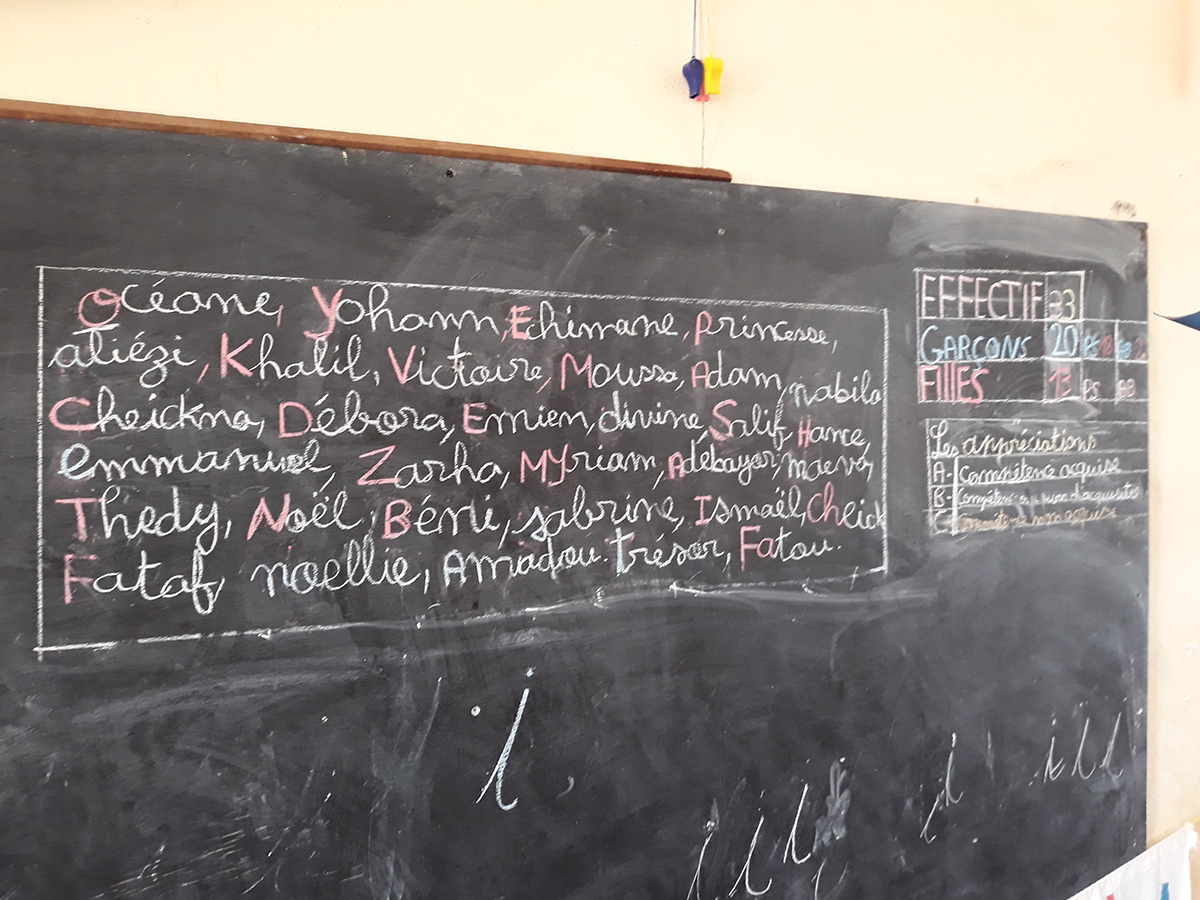 Océane, Yohann, Echimane, Princesse,
atiézi, Khalil, Victoire, Moussa, Adam, nabila
Cheickna, Débora, Emien, divine, Salif, Hance,
emmanuel, Zarha, MYriam, Adebayor, maeva,
Thedy, Noël, Béni, sabrine, Ismaël, Cheick
Fataf, noellie, Amadou. trésor, Fatou.
i
i i i i i i i i
EFFECTIF 33
GARCONS 20
FILLES 13 PS
Les appréciations
A- Compétence acquise
B-
C- non acquise